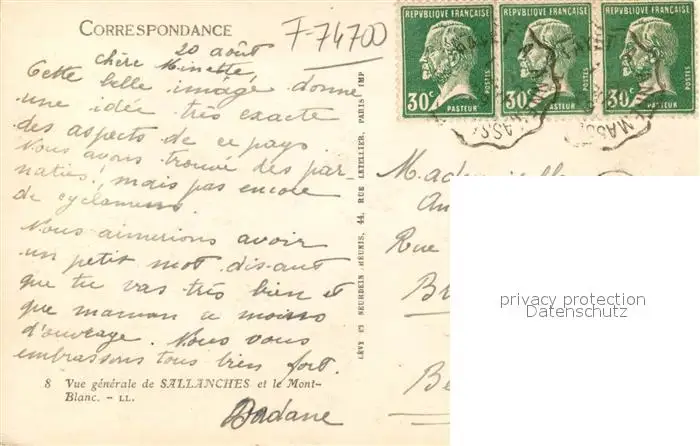 CORRESPONDANCE
F-74700
20 août
Chère Minette,
Cette belle image donne
une idée très exacte
des aspects de ce pays.
Nous avons trouvé des par
naties! mais pas encore
de cyclamens.
Nous aimerions avoir
un petit mot disant
que tu vas très bien et
que maman a moins
d'ouvrage. Nous vous
embrassons tous bien fort.
8 Vue générale de SALLANCHES et le Mont-
Blanc. - LL.
LÉVY ET NEURDEIN RÉUNIS, 44, RUE LETELLIER, PARIS IMP
RÉPUBLIQUE FRANÇAISE
30c POSTES
PASTEUR
RÉPUBLIQUE FRANÇAISE
30c POSTES
PASTEUR
RÉPUBLIQUE FRANÇAISE
30c POSTES
PASTEUR
Mademoiselle
An
Rue
privacy protection
Datenschutz